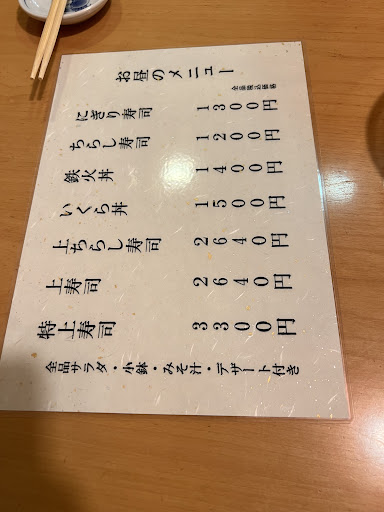 お昼のメニュー
全品税込価格
にぎり寿司 1300円
ちらし寿司 1200円
鉄火丼 1400円
いくら丼 1500円
上ちらし寿司 2640円
上寿司 2640円
特上寿司 3300円
全品サラダ・小鉢・みそ汁・デザート付き